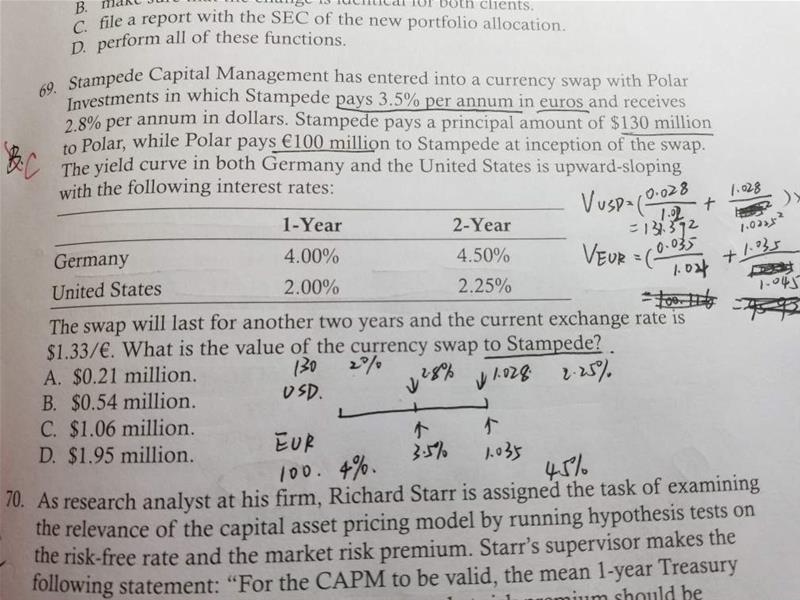 B. make sure that the change is identical for both clients.
C. file a report with the SEC of the new portfolio allocation.
D. perform all of these functions.
69. Stampede Capital Management has entered into a currency swap with Polar
Investments in which Stampede pays 3.5% per annum in euros and receives
2.8% per annum in dollars. Stampede pays a principal amount of $130 million
to Polar, while Polar pays €100 million to Stampede at inception of the swap.
C
The yield curve in both Germany and the United States is upward-sloping
with the following interest rates:
VUSD=(0.028/1.02 + 1.028/1.0225²)×
=131.392
1-Year 2-Year
VEUR=(0.035/1.04 + 1.035/1.045
Germany 4.00% 4.50%
United States 2.00% 2.25%
The swap will last for another two years and the current exchange rate is
$1.33/€. What is the value of the currency swap to Stampede?
A. $0.21 million.
B. $0.54 million.
C. $1.06 million.
D. $1.95 million.
130 2% 2.8% 1.028 2.25%
USD.
EUR 3.5% 1.035
100. 4%. 4.5%
70. As research analyst at his firm, Richard Starr is assigned the task of examining
the relevance of the capital asset pricing model by running hypothesis tests on
the risk-free rate and the market risk premium. Starr's supervisor makes the
following statement: "For the CAPM to be valid, the mean 1-year Treasury
premium should be